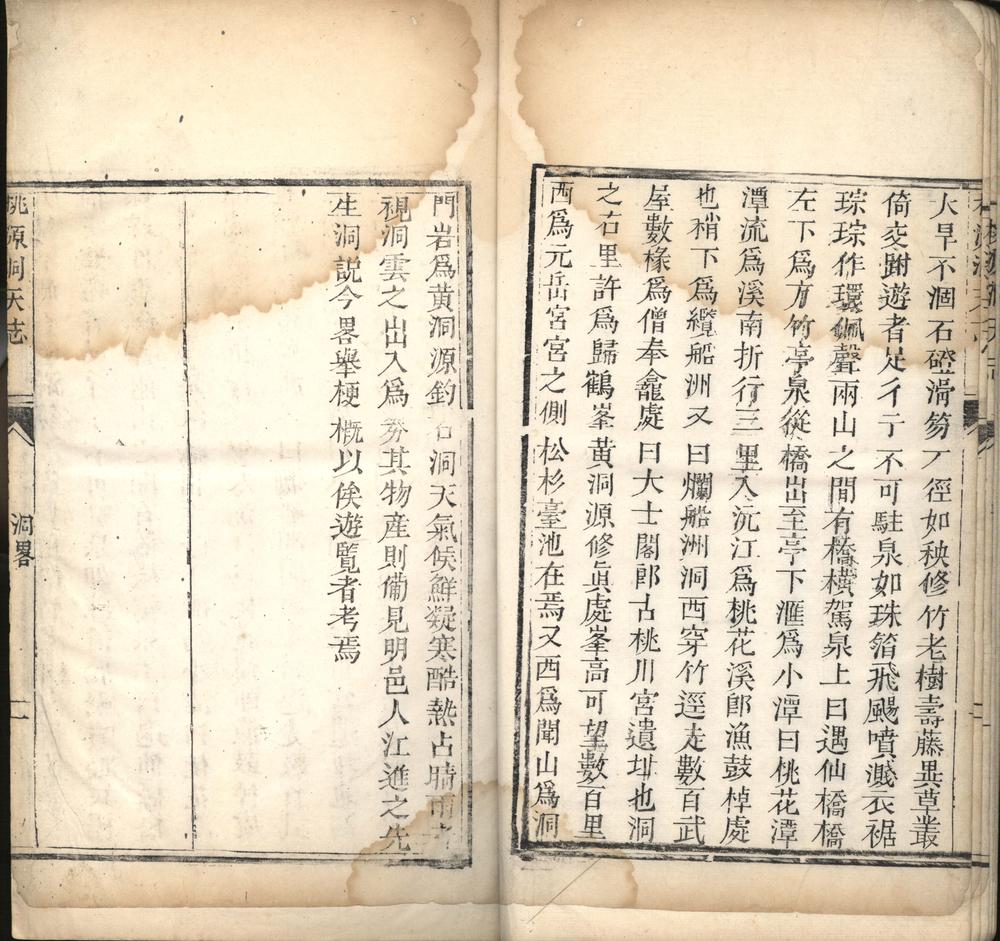 大旱不涸石磴滑笏丆徑如秧修竹老樹壽藤異草叢
倚交跗遊者足彳亍不可駐泉如珠箔飛颺噴濺衣裾
琮琮作環佩聲兩山之間有橋橫駕泉上曰遇仙橋橋
左下爲方竹亭泉從橋出至亭下滙爲小潭曰桃花潭
潭流爲溪南折行三里入沅江爲桃花溪郎漁鼓棹處
也稍下爲纜船洲又曰爛船洲洞西穿竹逕走數百武
屋數椽爲僧奉龕處曰大士閣郎古桃川宮遺址也洞
之右里許爲歸鶴峯黄洞源修眞處峯高可望數百里
西爲元岳宮宮之側松杉臺池在焉又西爲閘山爲洞
門岩爲黄洞源釣石洞天氣候鮮凝寒酷熱占晴雨者
視洞雲之出入爲券其物產則僃見明邑人江進之先
生洞説今畧舉梗概以俟遊覽者考焉
桃源洞天志
洞畧
二